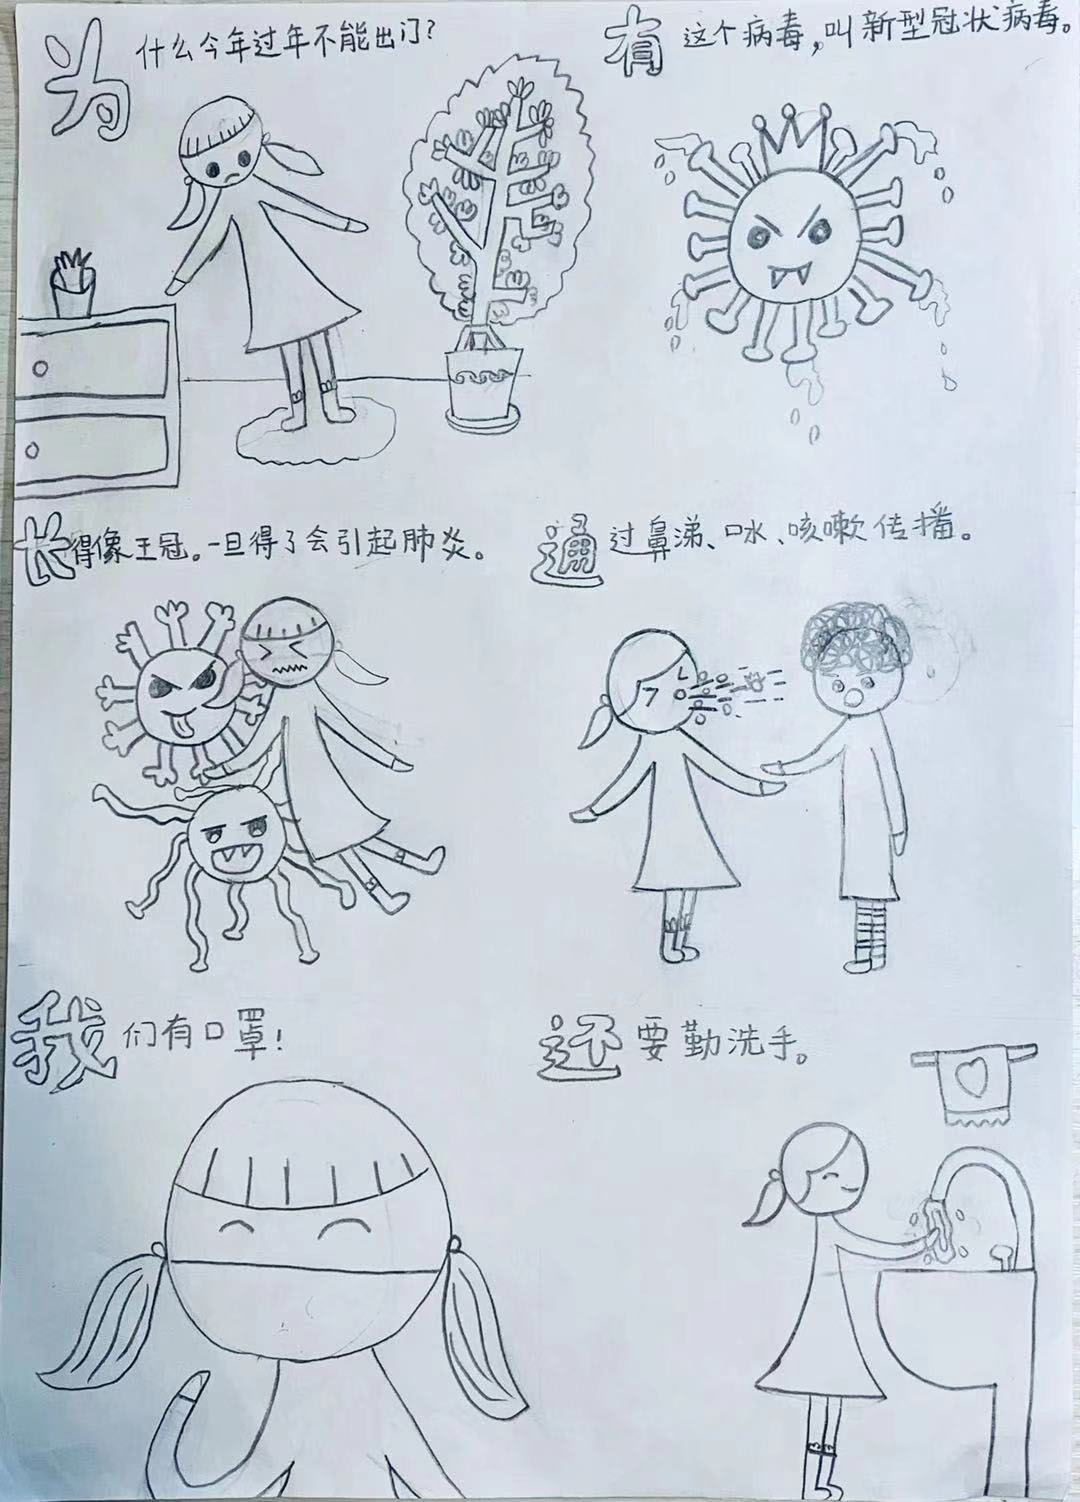 为什么今年过年不能出门?
有这个病毒,叫新型冠状病毒。
长得像王冠。一旦得了会引起肺炎。
通过鼻涕、口水、咳嗽传播。
我们有口罩!
还要勤洗手。